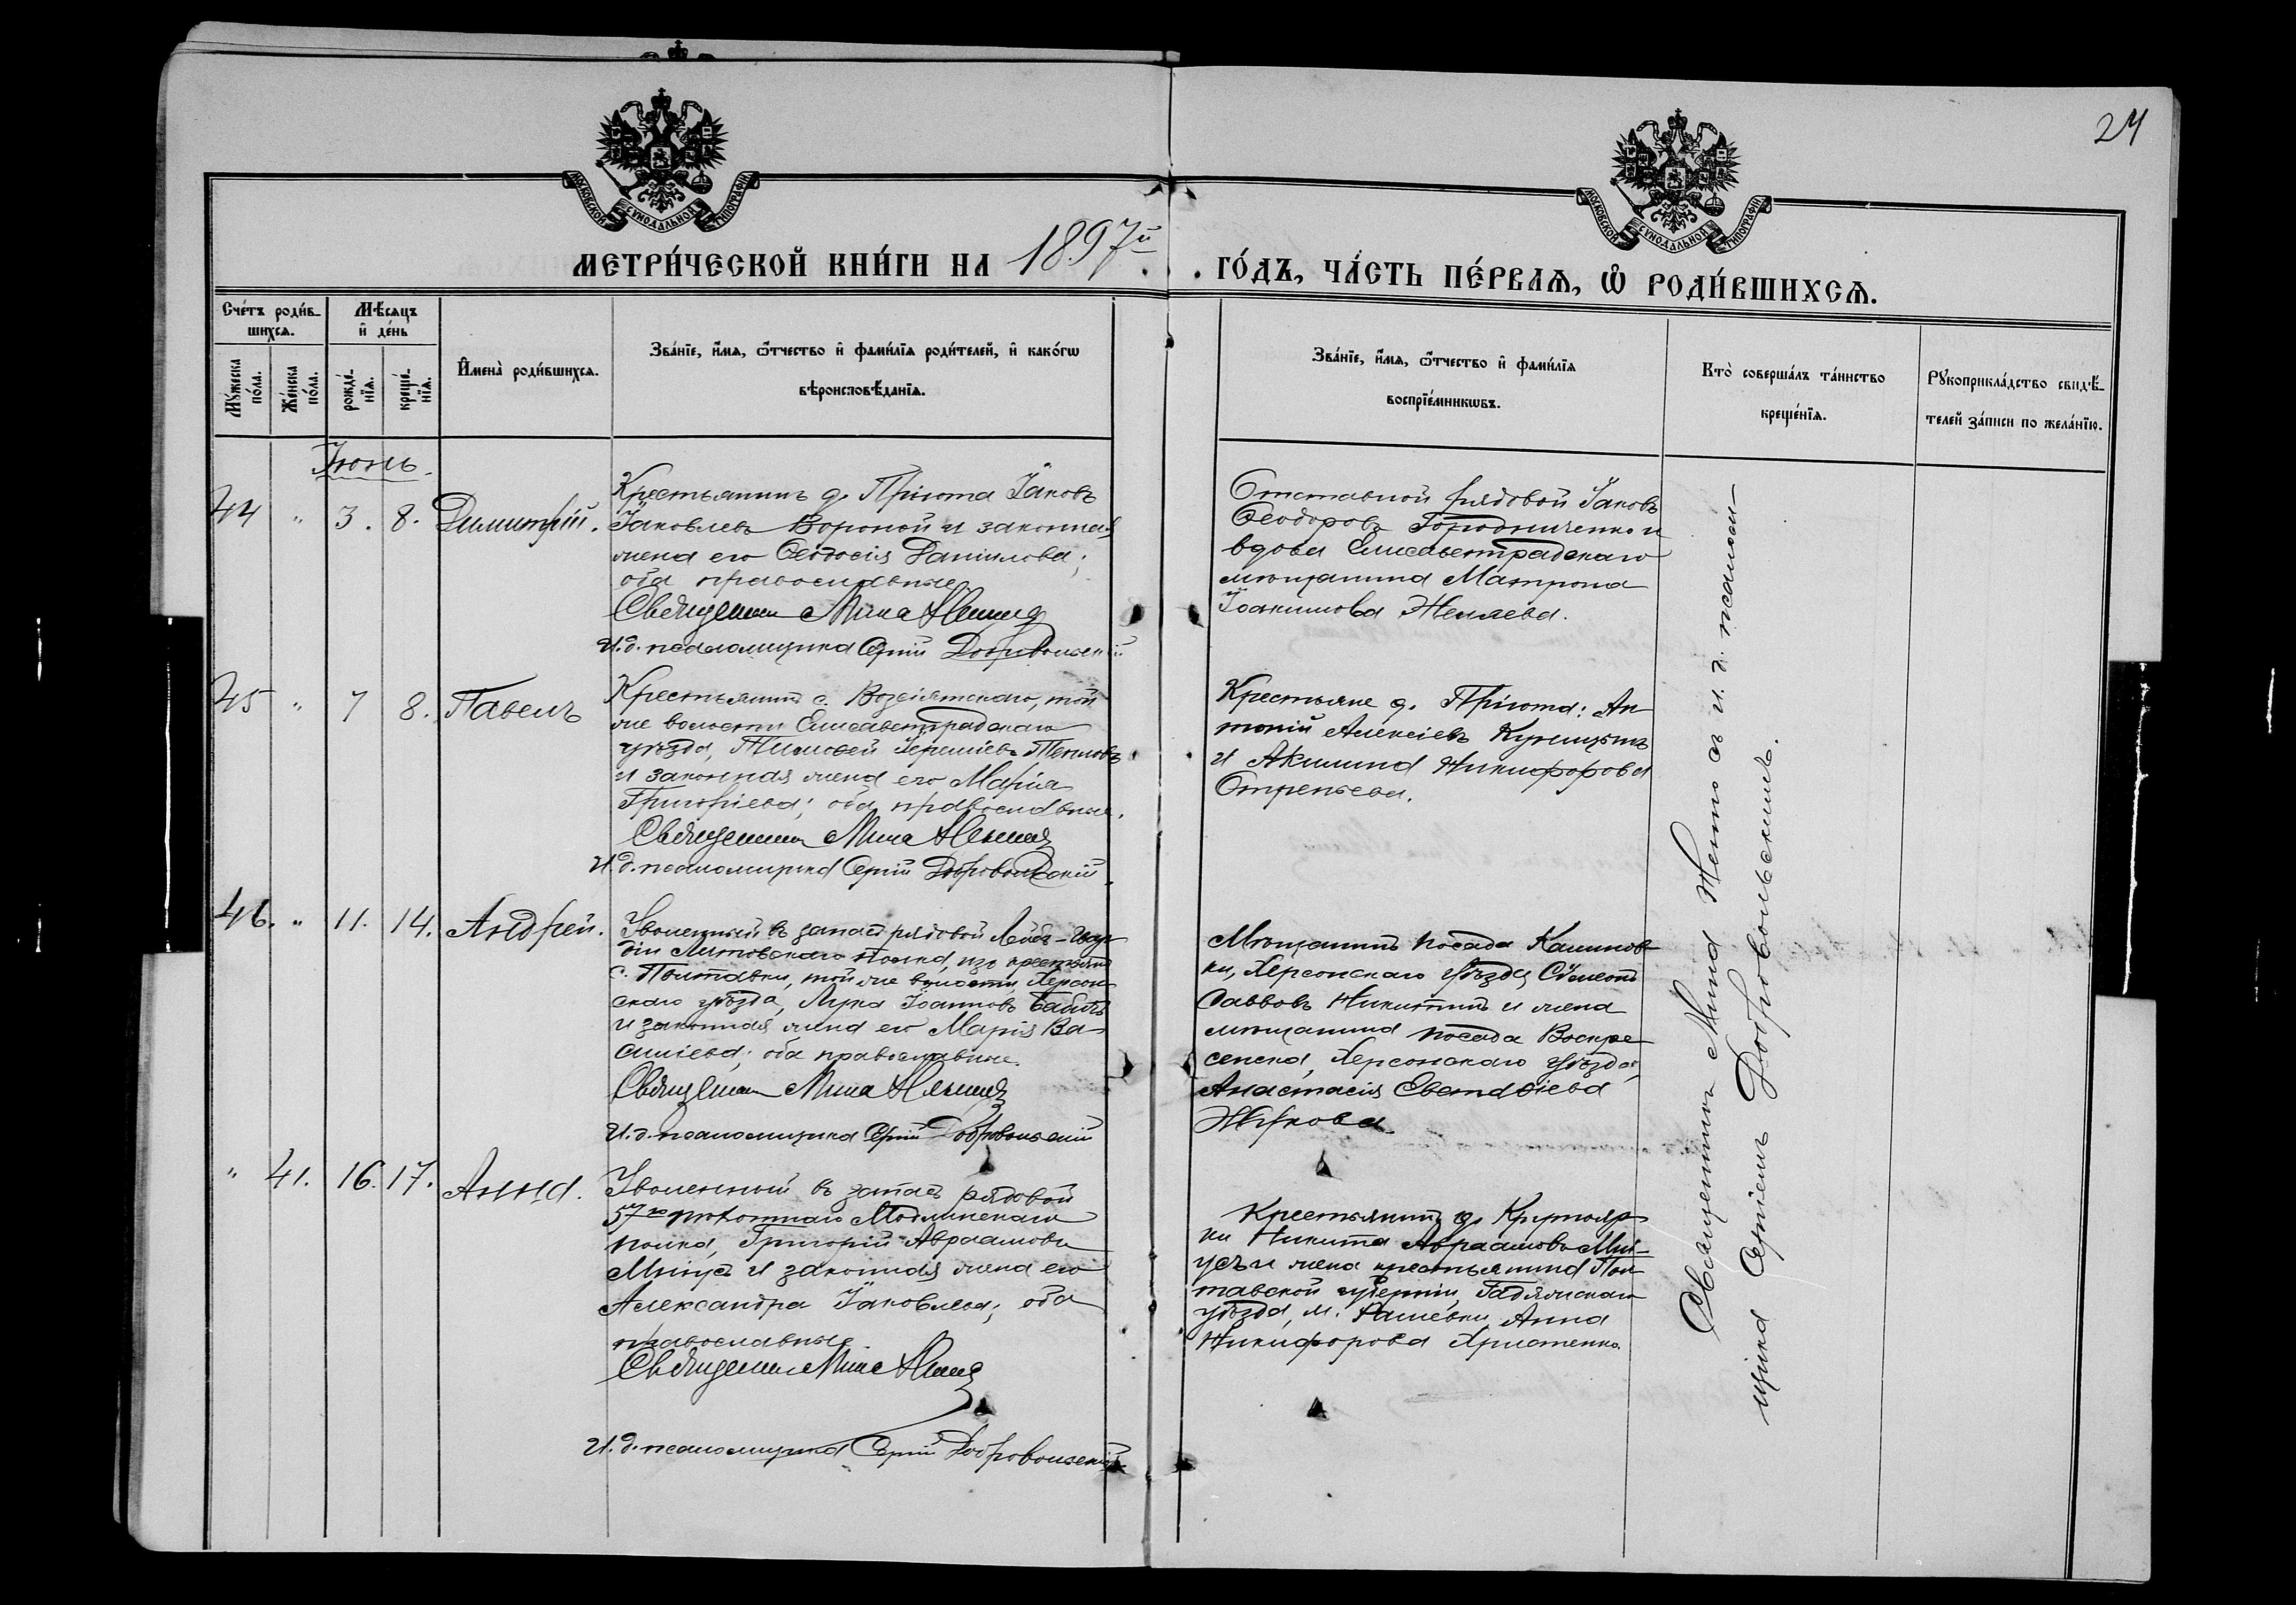 24
МОСКОВСКОЙ СѴНОДАЛЬНОЙ ТИПОГРАФІИ
МОСКОВСКОЙ СѴНОДАЛЬНОЙ ТИПОГРАФІИ
МЕТРИ́ЧЕСКОЙ КНИ́ГИ НА 1897й ГО́ДЪ, ЧА́СТЬ ПЕ́РВАѦ, Ѡ РОДИ́ВШИХСѦ.
Сче́тъ роди́в-
шихсѧ.
Мꙋ́жеска по́ла.
Же́нска по́ла.
Мѣ́сѧцъ
и҆ де́нь
рожде́-
нїѧ.
креще́-
нїѧ.
И҆мена̀ роди́вшихсѧ.
Зва́нїе, и҆́мѧ, ѻ҆́тчество и҆ фамѝлїѧ роди́телей, и҆ како́гѡ
вѣроисповѣ́данїѧ.
Зва́нїе, и҆́мѧ, ѻ҆́тчество и҆ фамѝлїѧ
воспрїе́мникѡвъ.
Кто̀ соверша́лъ та́инство
креще́нїѧ.
Рꙋкоприкла́дство свидѣ́-
телей за́писи по жела́нїю.
Іюнь.
44 " 3. 8. Димитрій.
Крестьянинъ д. Пріюта Іаковъ
Іаковлевъ Вороной и законная
жена его Ѳеодосія Даніилова;
оба православные
Священникъ Мина
И. д. псаломщика Сергій Добровольскій
Отставной рядовой Іаковъ
Ѳеодоровъ Городниченко и
вдова Елисаветградскаго
мѣщанина Матрона
Іоакимова Женяева.
45 " 7 8. Павелъ
Крестьянинъ с. Возсіятскаго, той
же волости Елисаветградскаго
уѣзда, Тимоѳей Іереміевъ
и законная жена его Марія
Григоріева; оба православные.
Священникъ Мина
И. д. псаломщика Сергій Добровольскій.
Крестьяне д. Пріюта: Ан-
тоній Алексіевъ Куницынъ
и Акилина Никифорова
Отрепьева.
46. " 11. 14. Андрей.
Уволенный въ запасъ рядовой Лейбъ-Гвар-
діи Литовскаго полка, изъ крестьянъ
с. Полтавки, той же волости, Херсон-
скаго уѣзда, Лука Іоанновъ Бабичъ
и законная жена его Марія Ва-
силіева; оба православные.
Священникъ Мина
И. д. псаломщика Сергій Добровольскій
Мѣщанинъ посада Калинов-
ки, Херсонскаго уѣзда Сѷмеонъ
Савовъ Никитинъ и жена
мѣщанина посада Воскре-
сенска, Херсонскаго уѣзда,
Анастасія Евстаѳіева
Жиркова.
" 41. 16. 17. Анна.
Уволенный въ запасъ рядовой
57го пѣхотнаго Модлинскаго
полка, Григорій Авраамовъ
Міусъ и законная жена его
Александра Іаковлева; оба
православные
Священникъ Мина
И. д. псаломщика Сергій Добровольскій
Крестьянинъ д. Крутояр-
ки Никита Авраамовъ Мі-
усъ и жена крестьянина Пол-
тавской губерніи, Гадячскаго
уѣзда, м. Рашевки, Анна
Никифорова Христенко.
Священникъ Мина съ и. д. псалом-
щика Сергіемъ Добровольскимъ.